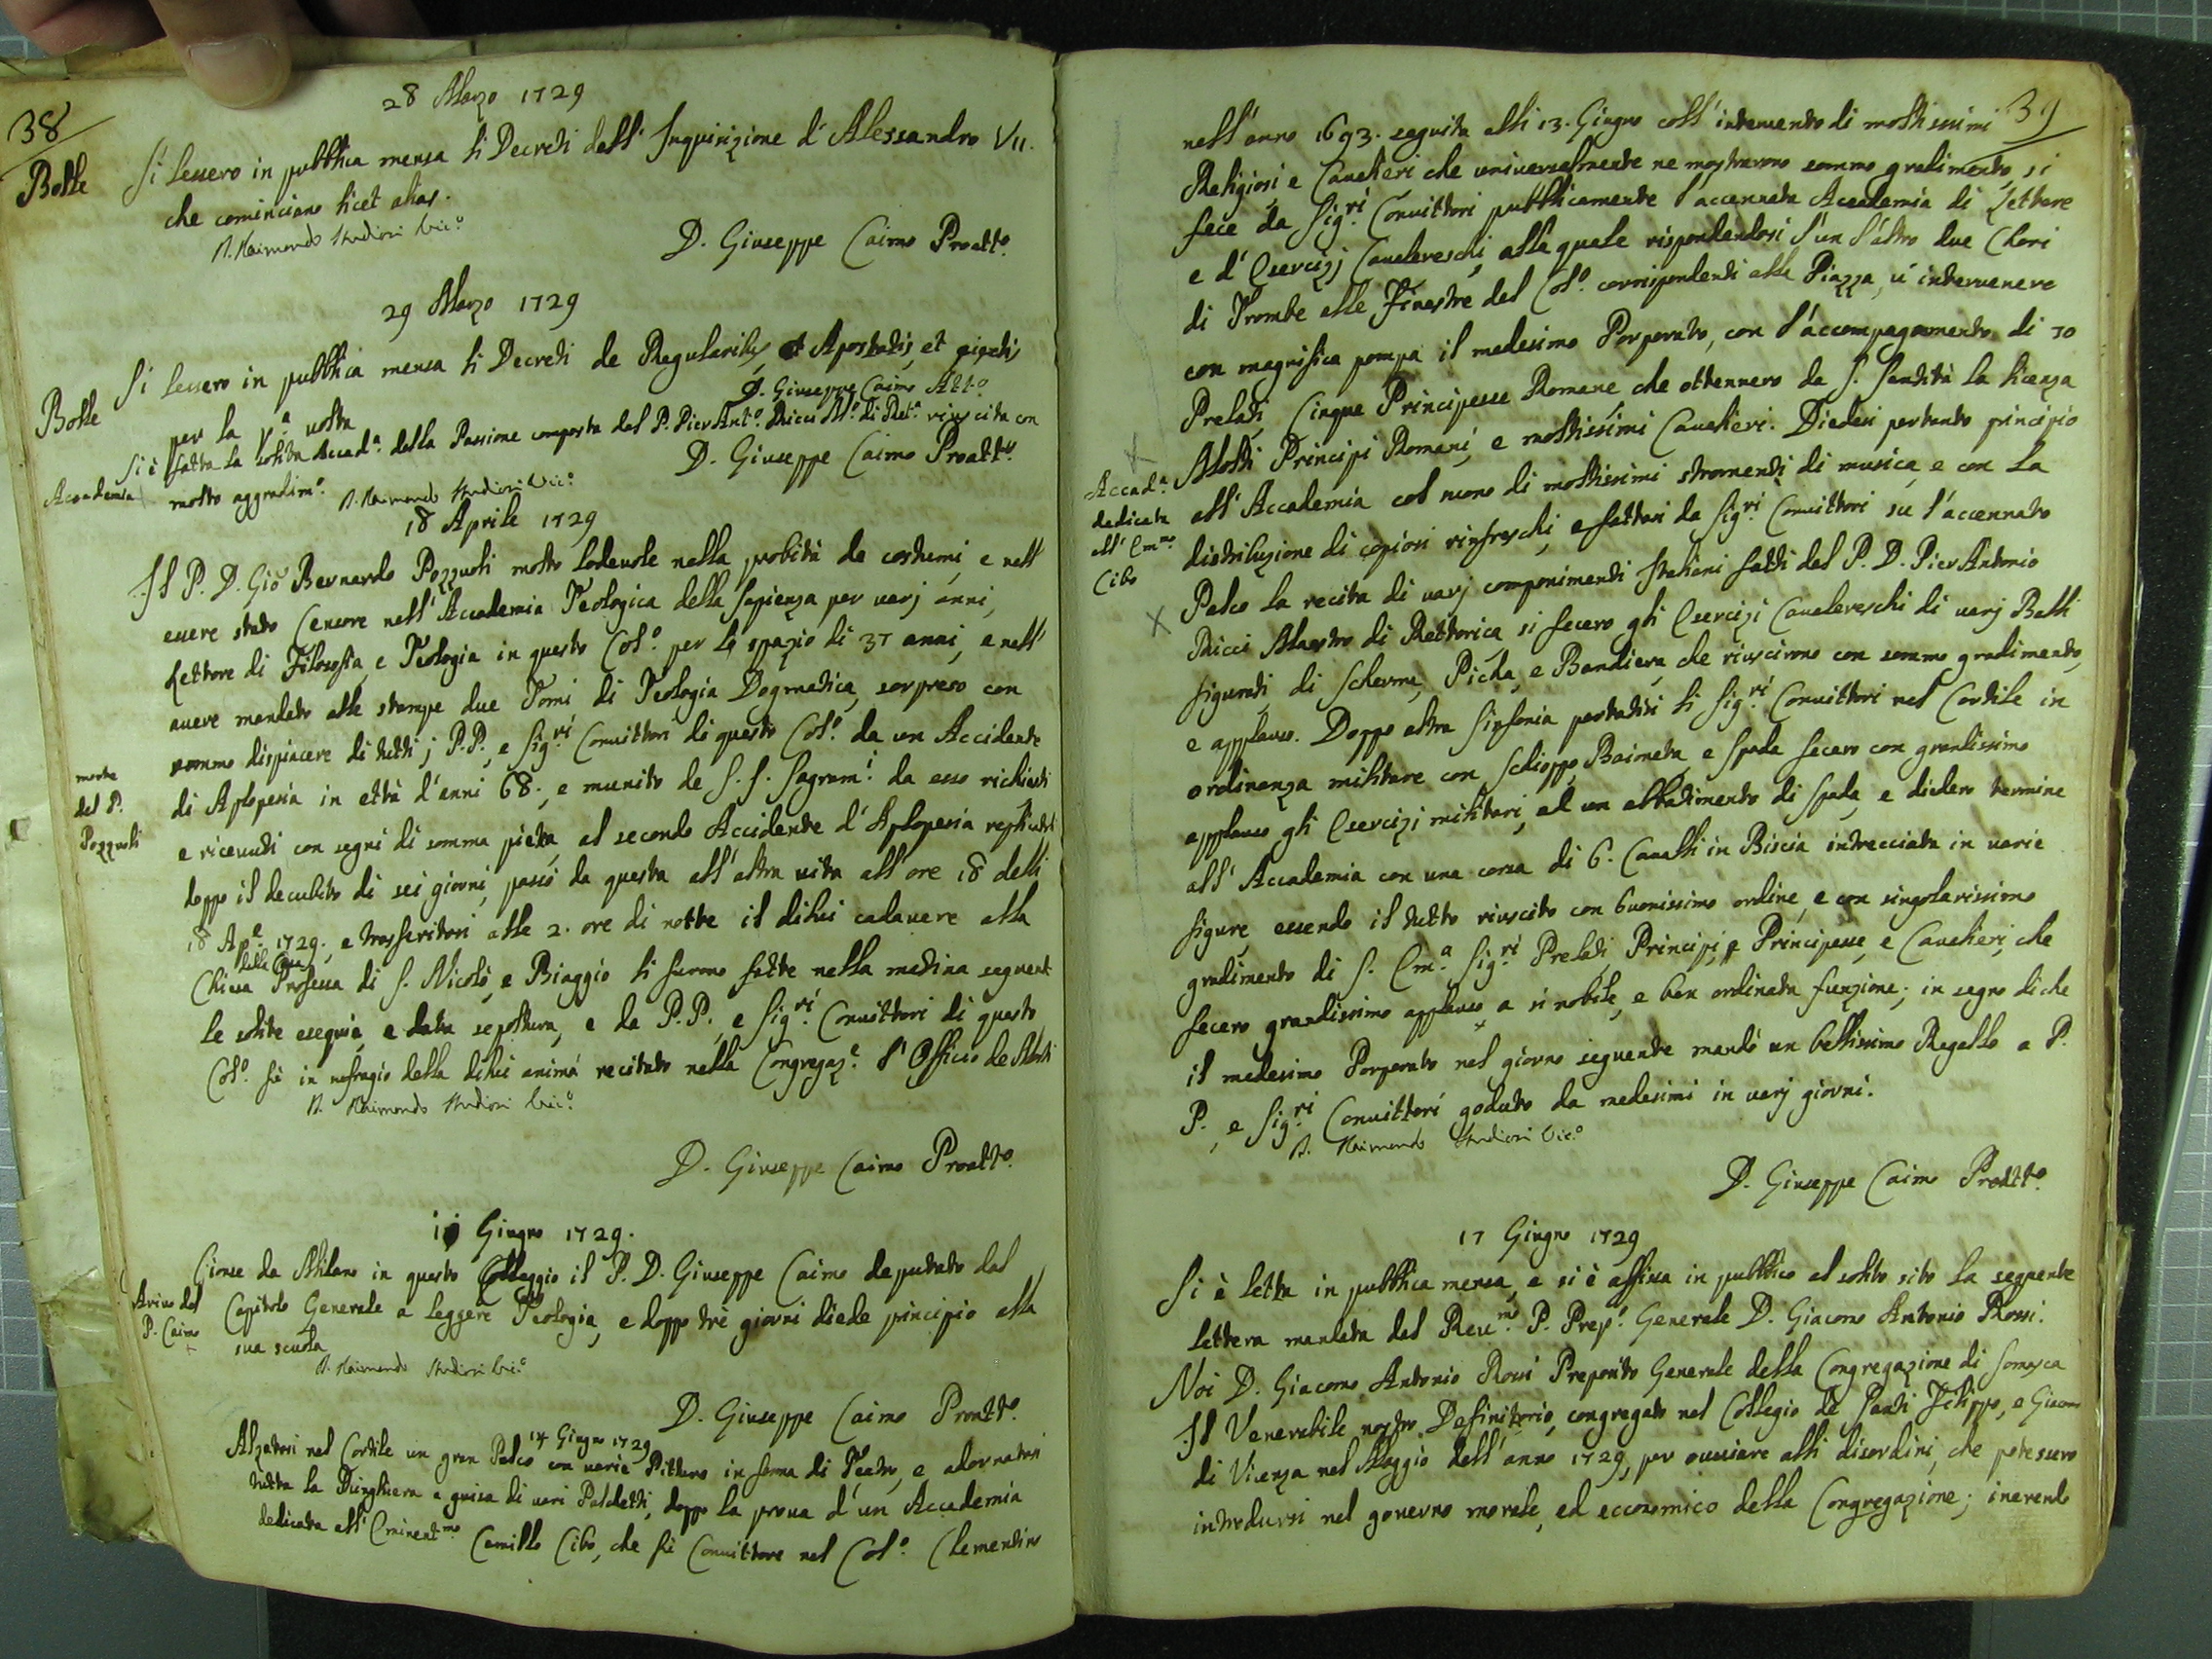 38
28 Marzo 1729
Bolle
Si lessero in pubblica mensa li Decreti dell' Inquisizione d'Alessandro VII.
che cominciano licet alias.
D. Raimondo Studiosi Vic.º
D. Giuseppe Caimo Proatt.º
29 Marzo 1729
Bolle
Si lessero in pubblica mensa li Decreti de Regularib, et Apostatis, et eiectis
per la p.ª volta
D. Giuseppe Caimo Att.º
Accademia
Si è fatta la solita Accad.ª della Passione composta dal P. Pier Ant.º Ricci M.º di Ret.ª riuscita con
molto aggradim.º
D. Giuseppe Caimo Proatt.º
D. Raimondo Studiosi Vic.º
18 Aprile 1729
Il P. D. Gio Bernardo Pozzuoli molto lodevole nella probità de costumi, e nell
essere stato Censore nell'Accademia Teologica della Sapienza per varj anni,
Lettore di Filosofia, e Teologia in questo Col.º per lo spazio di 37 anni, e nell'
avere mandato alle stampe due Tomi di Teologia Dogmatica, sorpreso con
sommo dispiacere di tutti j P.P., e Sig.ri Convittori di questo Col.º da un Accidente
morte
del P.
Pozzuoli
di Aplopesia in ettà d'anni 68., e munito de S.S. Sagram.i da esso richiesti
e ricevuti con segni di somma pietà, al secondo Accidente d'Aplopesia replicatoli
doppo il decubito di sei giorni, passò da questa all'altra vita all'ore 18 delli
18 Ap.e 1729., e trasferitosi alle 2. ore di notte il dilui cadavere alla
della Casa
Chiesa Professa di S. Nicolò, e Biaggio li furono fatte nella matina seguent
le solite esequie, e data sepoltura, e da P.P., e Sig.ri Convittori di questo
Col.º fù in sufragio della dilui anima recitato nella Congregaz.e l'Officio de Morti
D. Raimondo Studiosi Vic.º
D. Giuseppe Caimo Proatt.º
11 Giugno 1729.
Arivo del
P. Caimo
Gionse da Milano in questo Colleggio il P. D. Giuseppe Caimo deputato dal
Capitolo Generale a leggere Teologia, e doppo trè giorni diede principio alla
sua scuola
D. Raimondo Studiosi Vic.º
D. Giuseppe Caimo Proatt.º
14 Giugno 1729
Alzatosi nel Cortile un gran Palco con varie Pitture in forma di Teatro, e adornatosi
tutta la Ringhiera a guisa di vari Palchetti, doppo la prova d'un Accademia
dedicata all'Eminent.mo Camillo Cibo, che fù Convittore nel Col.º Clementino
39
nell'anno 1693. seguita alli 13. Giugno coll'intervento di moltissimi
Religiosi, e Cavalieri che universalmente ne mostrarono sommo gradimento, si
fece da Sig.ri Convittori pubblicamente l'accennata Accademia di Lettere
e d'Esercizj Cavalereschi, alla quale rispondendosi l'un l'altro due Chori
di Trombe alle Finestre del Col.º corrispondenti alla Piazza, v'intervenere
con magnifica pompa il medesimo Porporato, con l'accompagnamento di 30
Prelati, Cinque Principesse Romane che ottennero da S. Santità la licenza
Molti Principi Romani, e moltissimi Cavalieri. Diedesi pertanto principio
Accad.ª
dedicata
all'Em.mo
Cibo
all'Accademia col suono di moltissimi stromenti di musica, e con la
distribuzione di copiosi rinfreschi, e fattasi da Sig.ri Convittori su l'accennato
Palco la recita di varj componimenti Italiani fatti dal P. D. Pier Antonio
Ricci Maestro di Rettorica, si fecero gli Esercizi Cavalereschi di varj Balli
figurati, di Scherma, Picha, e Bandiera, che riuscirono con sommo gradimento,
e applauso. Doppo altra Sinfonia portatisi li Sig.ri Convittori nel Cortile in
ordinanza militare con Schioppo, Baioneta, e Spada fecero con grandissimo
applauso gli Esercizi militari, ed un abbatimento di Spada, e diedero termine
all'Accademia con una corsa di 6. Cavalli in Biscia intrecciata in varie
figure, essendo il tutto riuscito con buonissimo ordine, e con singolarissimo
gradimento di S. Em.ª Sig.ri Prelati Principi, e Principesse, e Cavalieri, che
fecero grandissimo applauso a sì nobile, e ben ordinata funzione; in segno di che
il medesimo Porporato nel giorno seguente mandò un bellissimo Regallo a P.
P., e Sig.ri Convittori goduto da medesimi in varj giorni.
D. Raimondo Studiosi Vic.º
D. Giuseppe Caimo Proatt.º
17 Giugno 1729
Si è letta in pubblica mensa, e si è affissa in pubblico al solito sito la seguente
lettera mandata dal Rev.mo P. Prep.º Generale D. Giacomo Antonio Rossi.
Noi D. Giacomo Antonio Rossi Preposito Generale della Congregazione di Somasca
Il Venerabile nostro Definitorio, congregato nel Collegio de Santi Filippo, e Giacomo
di Vicenza nel Maggio dell'anno 1729, per ovviare alli disordini, che potessero
introdursi nel governo morale, ed economico della Congregazione; inerendo